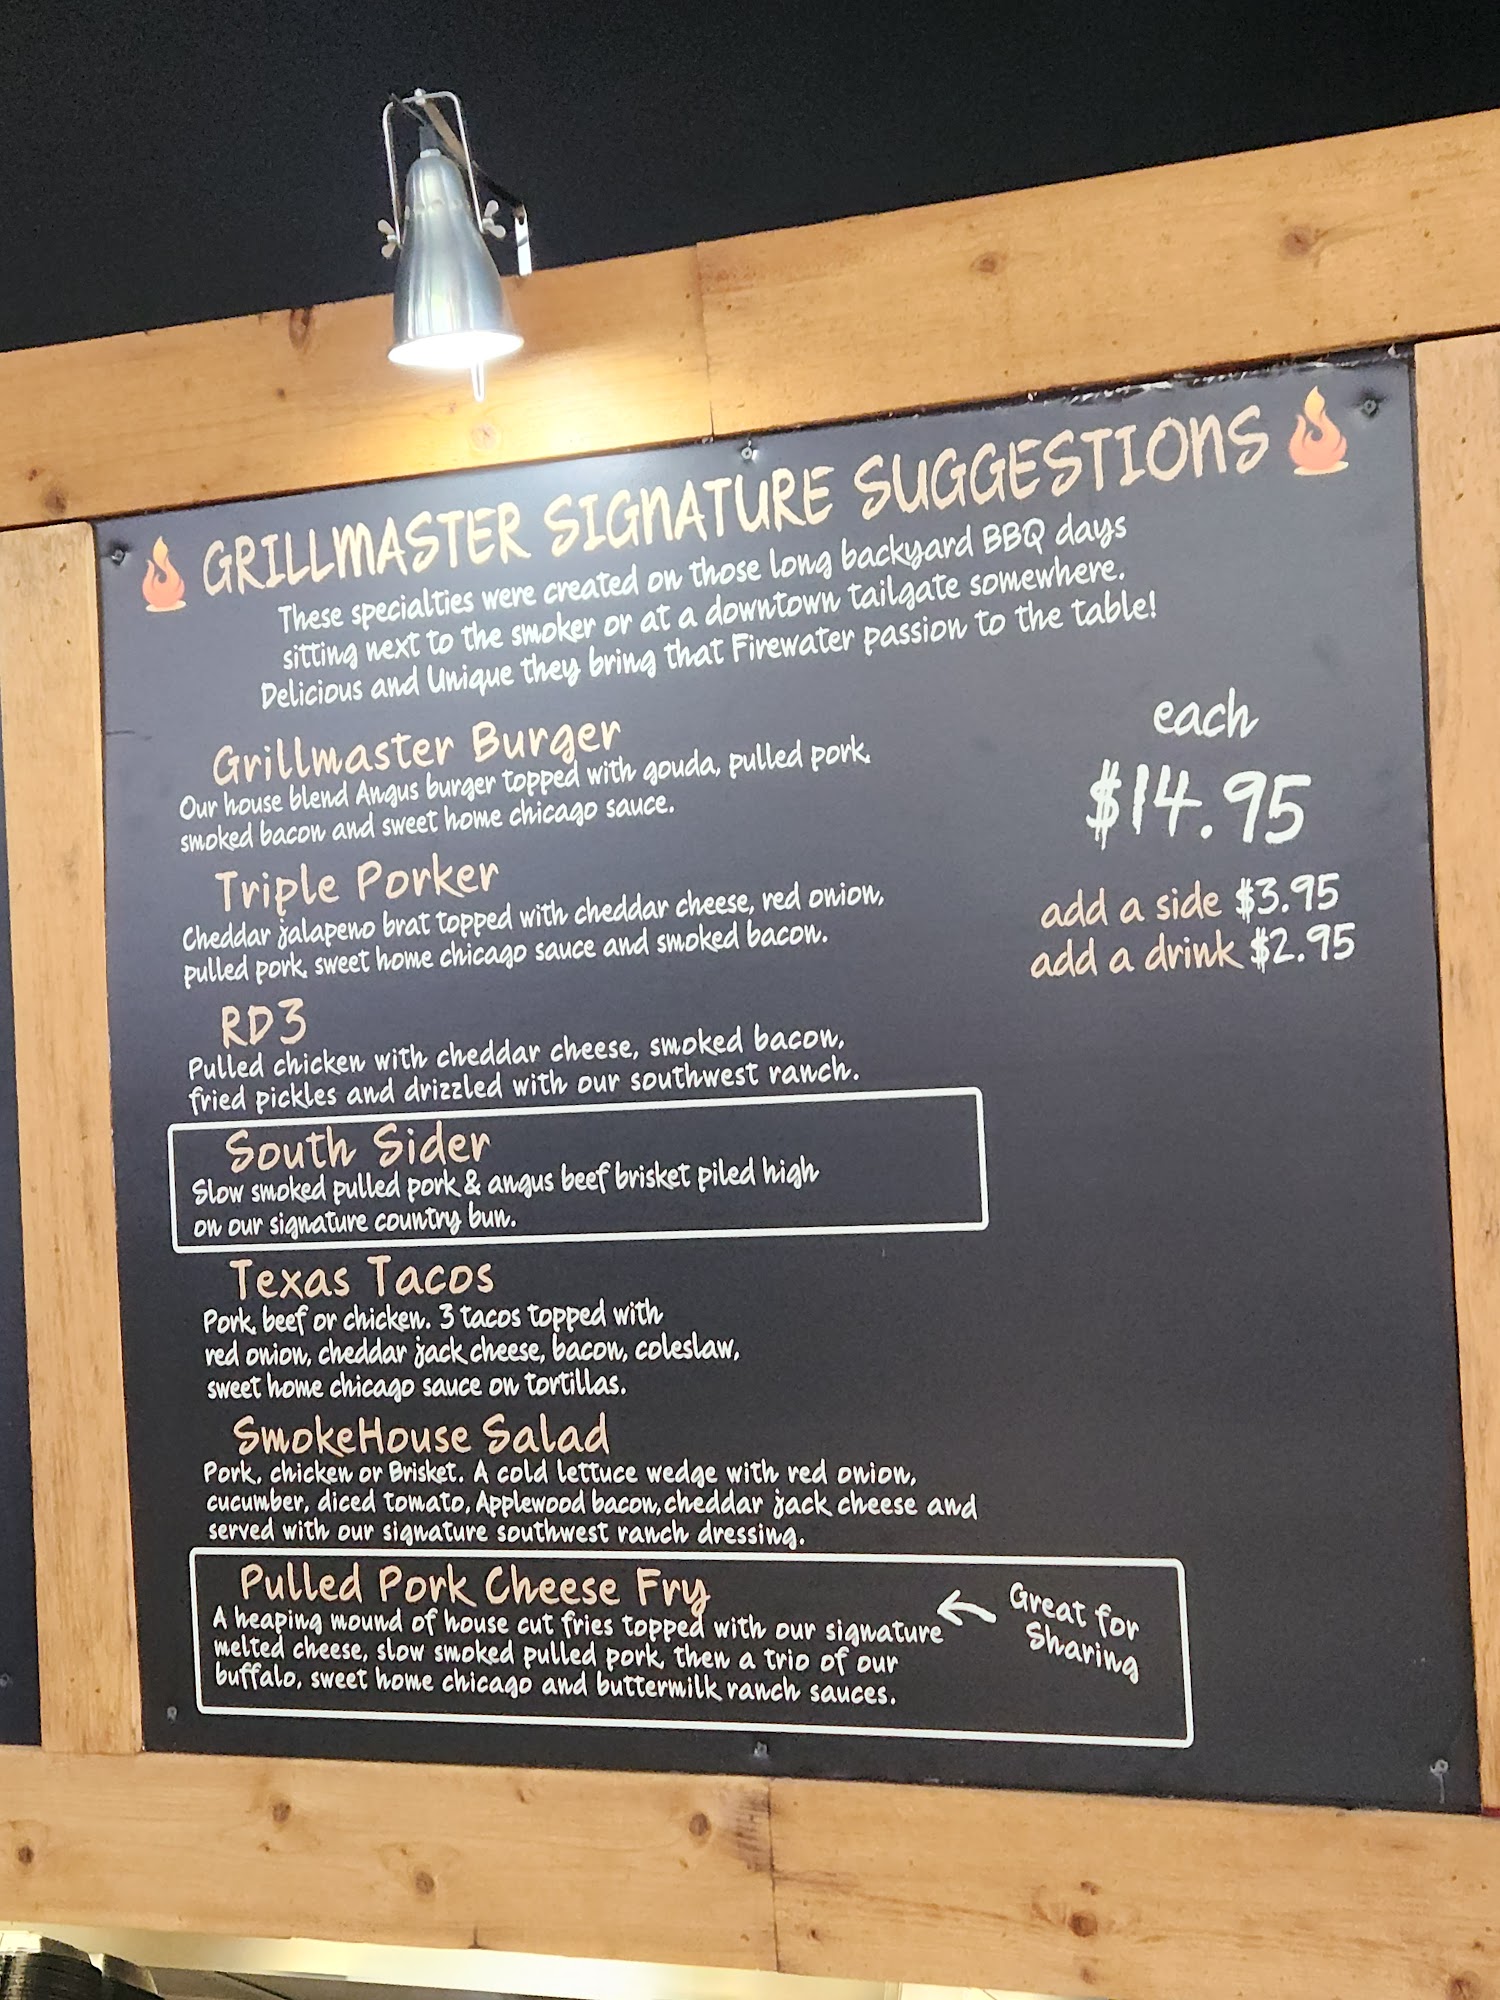 GRILLMASTER SIGNATURE SUGGESTIONS
These specialties were created on those long backyard BBQ days
sitting next to the smoker or at a downtown tailgate somewhere.
Delicious and Unique they bring that Firewater passion to the table!
Grillmaster Burger
Our house blend Angus burger topped with gouda, pulled pork,
smoked bacon and sweet home chicago sauce.
Triple Porker
Cheddar jalapeno brat topped with cheddar cheese, red onion,
pulled pork, sweet home chicago sauce and smoked bacon.
RD3
Pulled chicken with cheddar cheese, smoked bacon,
fried pickles and drizzled with our southwest ranch.
South Sider
Slow smoked pulled pork & angus beef brisket piled high
on our signature country bun.
Texas Tacos
Pork, beef or chicken. 3 tacos topped with
red onion, cheddar jack cheese, bacon, coleslaw,
sweet home chicago sauce on tortillas.
SmokeHouse Salad
Pork, chicken or Brisket. A cold lettuce wedge with red onion,
cucumber, diced tomato, Applewood bacon, cheddar jack cheese and
served with our signature southwest ranch dressing.
Pulled Pork Cheese Fry
A heaping mound of house cut fries topped with our signature
melted cheese, slow smoked pulled pork, then a trio of our
buffalo, sweet home chicago and buttermilk ranch sauces.
Great for
Sharing
each
$14.95
add a side $3.95
add a drink $2.95